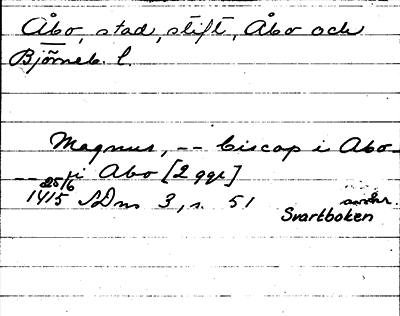 Åbo, stad, stift, Åbo och
Björneb. l.
Magnus, -- biscop i Abo
-- i Abo [2 ggr]
25/6
1415 SDns 3, s. 51
avskr.
Svartboken